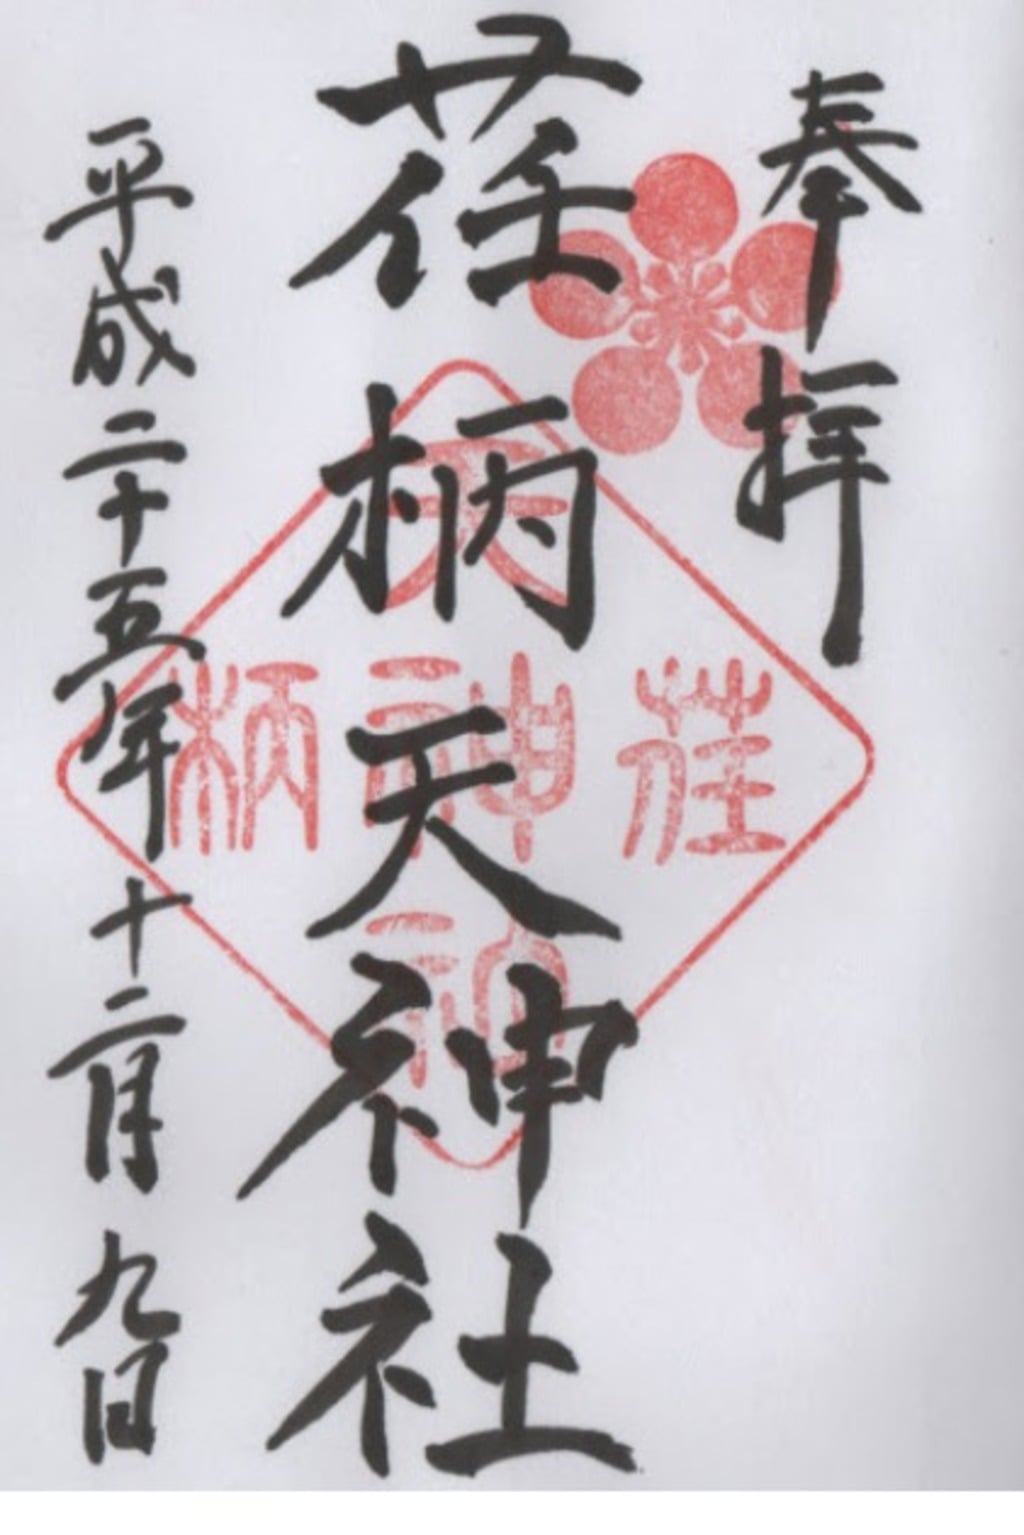 奉拝
荏柄天神社
平成二十五年十二月九日
天
荏神柄
社